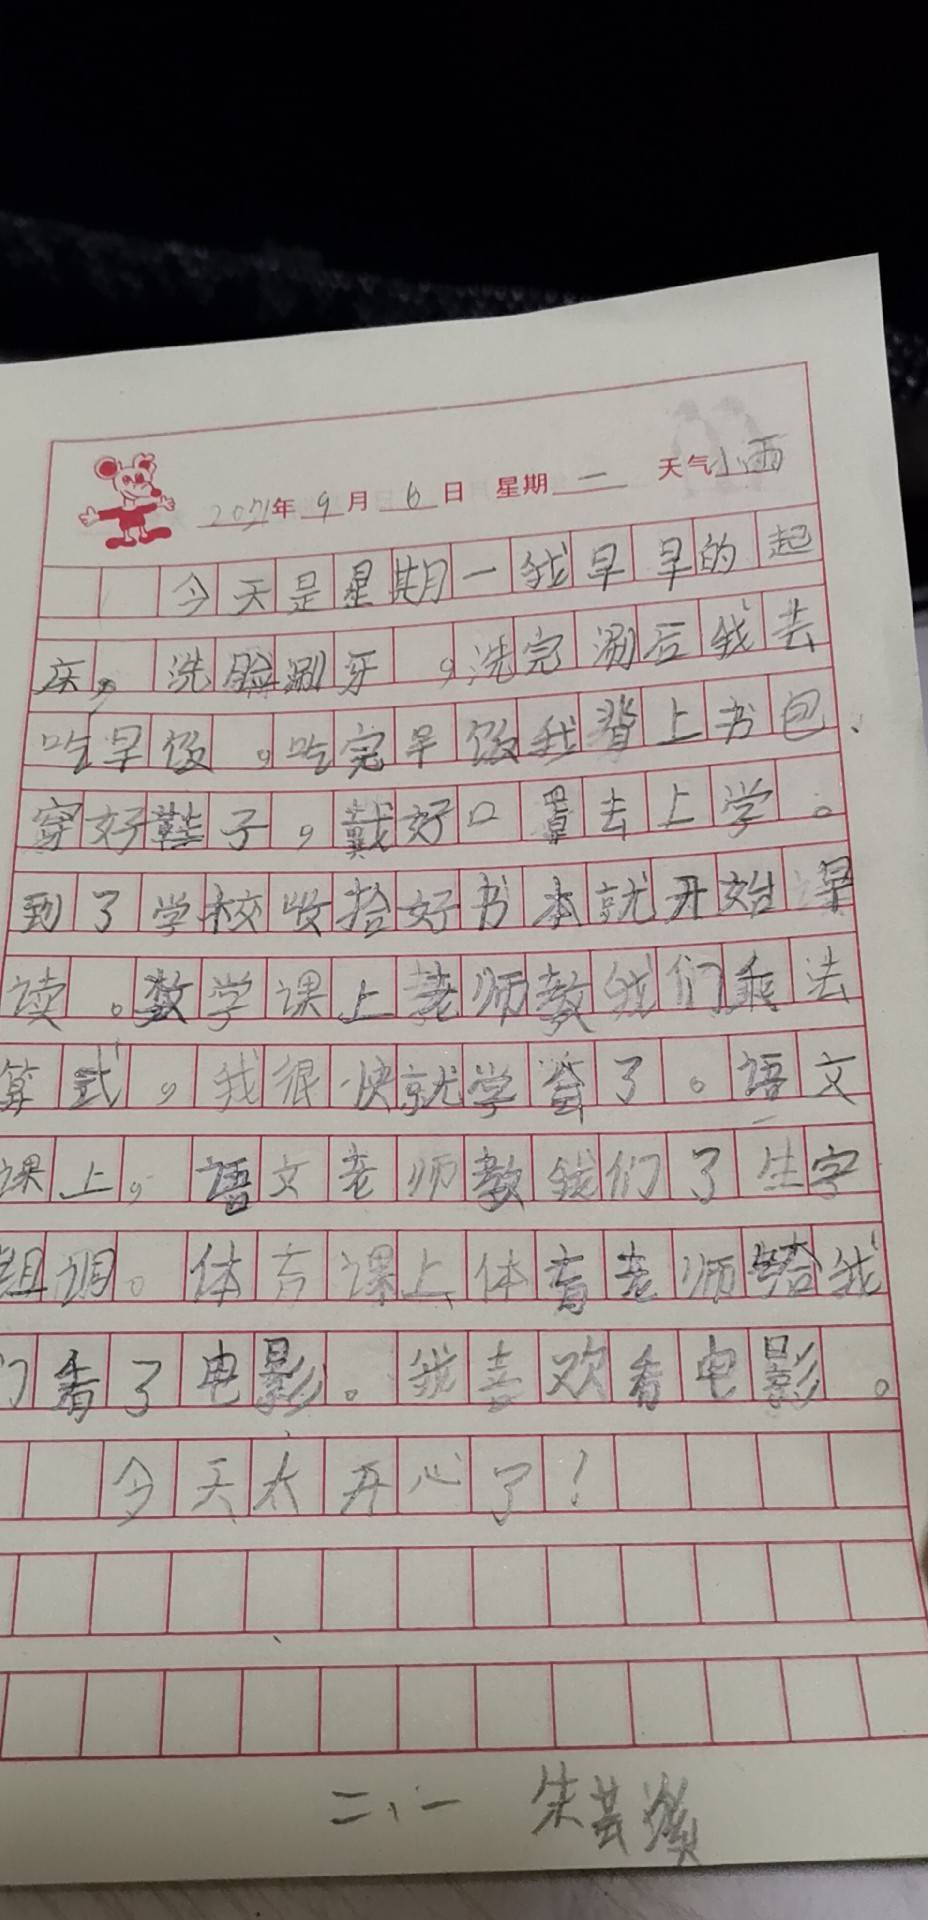 2021年9月6日 星期一 天气小雨
今天是星期一我早早的起
床，洗脸涮牙，洗完涮后我去
吃早饭。吃完早饭我背上书包、
穿好鞋子，戴好口罩去上学。
到了学校收拾好书本就开始早
读。数学课上老师教我们乘法
算式，我很快就学会了。语文
课上，语文老师教我们了生字
组词。体育课上体育老师给我
们看了电影。我喜欢看电影。
今天太开心了！
二、一 朱芸